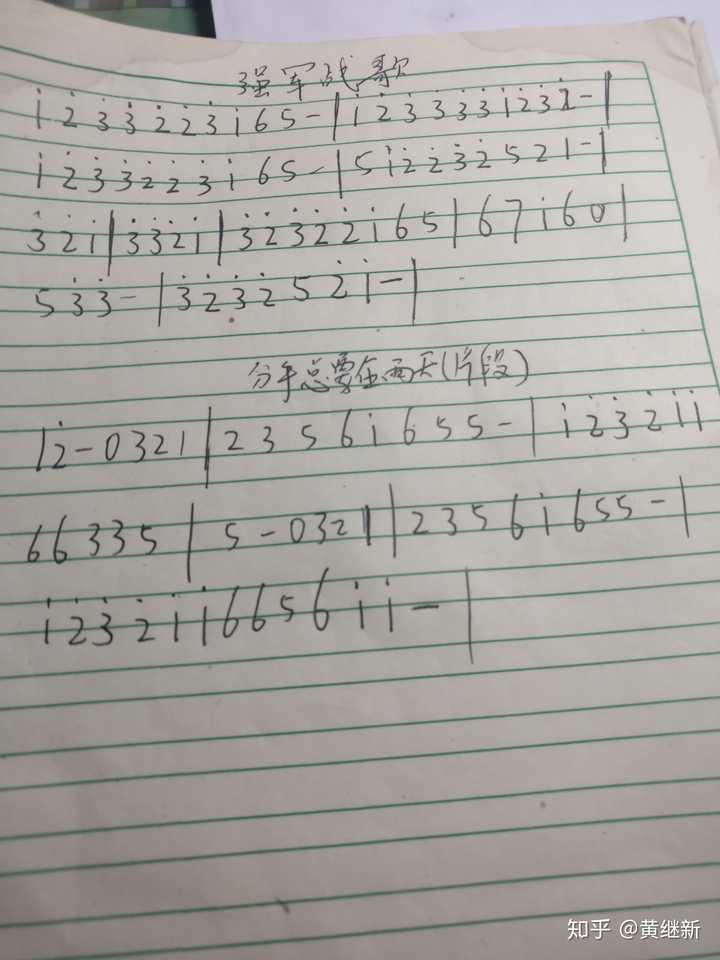 强军战歌
i 2̇ 3̇ 3̇ 2̇ 2̇ 3̇ i 6 5 - | i 2̇ 3̇ 3̇ 3̇ 3̇ i 2̇ 3̇ 2̇ - |
i 2̇ 3̇ 3̇ 2̇ 2̇ 3̇ i 6 5 - | 5 i 2̇ 2̇ 3̇ 2̇ 5 2 1 - |
3̇ 2̇ i | 3̇ 3̇ 2̇ i | 3̇ 2̇ 3̇ 2̇ 2̇ i 6 5 | 6 7 i 6 0 |
5 3̇ 3̇ - | 3̇ 2̇ 3̇ 2̇ 5 2̇ i - |
分手总要在雨天(片段)
| 2̇ - 0 3 2 1 | 2 3 5 6 i 6 5 5 - | i 2̇ 3̇ 2̇ i i
6 6 3 3 5 | 5 - 0 3 2 1 | 2 3 5 6 i 6 5 5 - |
i 2̇ 3̇ 2̇ i i 6 6 5 6 i i - |
知乎 @黄继新